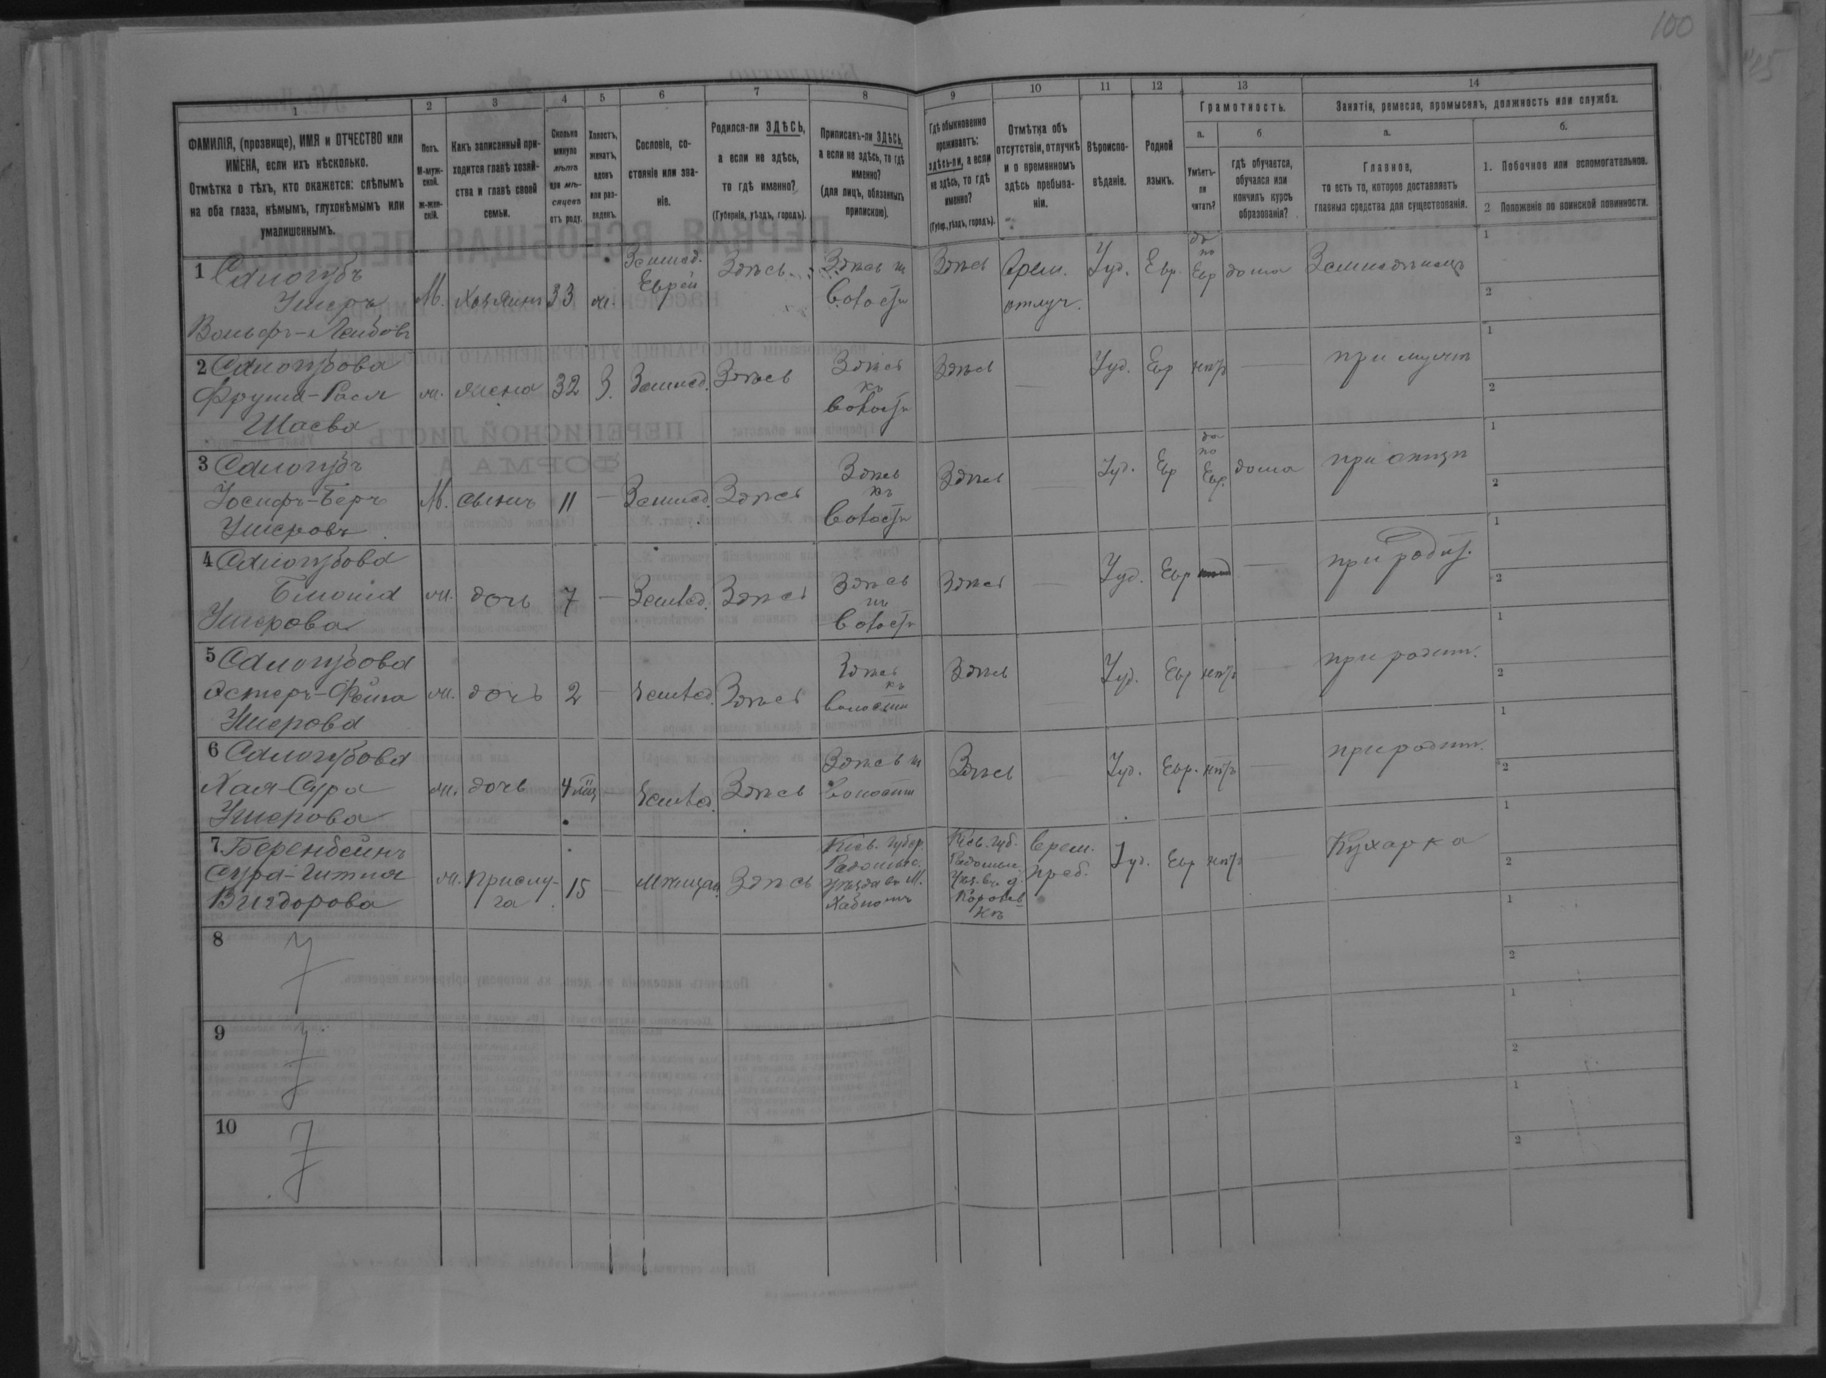 100
1 2 3 4 5 6 7 8 9 10 11 12 13 14
ФАМИЛІЯ, (прозвище), ИМЯ и ОТЧЕСТВО или
ИМЕНА, если ихъ нѣсколько.
Отмѣтка о тѣхъ, кто окажется: слѣпымъ
на оба глаза, нѣмымъ, глухонѣмымъ или
умалишеннымъ.
Полъ.
М-муж-
ской.
ж-жен-
скій.
Какъ записанный при-
ходится главѣ хозяй-
ства и главѣ своей
семьи.
Сколько
минуло
лѣтъ
или мѣ-
сяцевъ
отъ роду.
Холостъ,
женатъ,
вдовъ
или раз-
веденъ.
Сословіе, со-
стояніе или зва-
ніе.
Родился-ли ЗДѢСЬ,
а если не здѣсь,
то гдѣ именно?
(Губернія, уѣздъ, городъ).
Приписанъ-ли ЗДѢСЬ,
а если не здѣсь, то гдѣ
именно?
(для лицъ, обязанныхъ
припискою).
Гдѣ обыкновенно
проживаетъ:
здѣсь-ли, а если
не здѣсь, то гдѣ
именно?
(Губер., уѣздъ, городъ).
Отмѣтка объ
отсутствіи, отлучкѣ
и о временномъ
здѣсь пребыва-
ніи.
Вѣроиспо-
вѣданіе.
Родной
языкъ.
Грамотность.
а. б
Умѣетъ-
ли
читать?
гдѣ обучается,
обучался или
кончилъ курсъ
образованія?
Занятія, ремесло, промыселъ, должность или служба.
а. б.
Главное,
то есть то, которое доставляетъ
главныя средства для существованія.
1. Побочное или вспомогательное.
2 Положеніе по воинской повинности.
1 Самогубъ
Ушеръ
Вольфъ-Лейбовъ
М. Хозяинъ 33 ж. Земled. Еврей Здѣсь Здѣсь къ волости Здѣсь Врем. отлуч. Іуд. Евр. да по Евр дома Земледѣлецъ
1
2
2 Самогубова
Фрума-Рася
Шаева
ж. жена 32 З. Землед. Здѣсь Здѣсь къ волости Здѣсь — Іуд. Евр нѣтъ — при мужѣ
1
2
3 Самогубъ
Іосифъ-Беръ
Ушеровъ
М. сынъ 11 — Землед. Здѣсь Здѣсь къ волости Здѣсь Іуд. Евр да по Евр. дома при отцѣ
1
2
4 Самогубова
Ушерова
ж. дочь 7 — Землед. Здѣсь Здѣсь къ волости Здѣсь — Іуд. Евр — при родит.
1
2
5 Самогубова
Эстеръ-Фейга
Ушерова
ж. дочь 2 — Землед. Здѣсь Здѣсь къ волости Здѣсь Іуд. Евр нѣтъ — при родит.
1
2
6 Самогубова
Хая-Сура
Ушерова
ж. дочь 4 мѣс. Землед. Здѣсь Здѣсь къ волости Здѣсь — Іуд. Евр. нѣтъ — при родит.
1
2
7 Беренбейнъ
Сура-Гитля
Вигдорова
ж. прислу-
га 15 — мѣщан. Здѣсь Кіев. губер. Радомысл. уѣзда въ М. Хабномъ Кіев. губ. Радомысл. уѣз. въ д. Врем. преб. Іуд. Евр нѣтъ — Кухарка
1
2
8
1
2
9
1
2
10
1
2